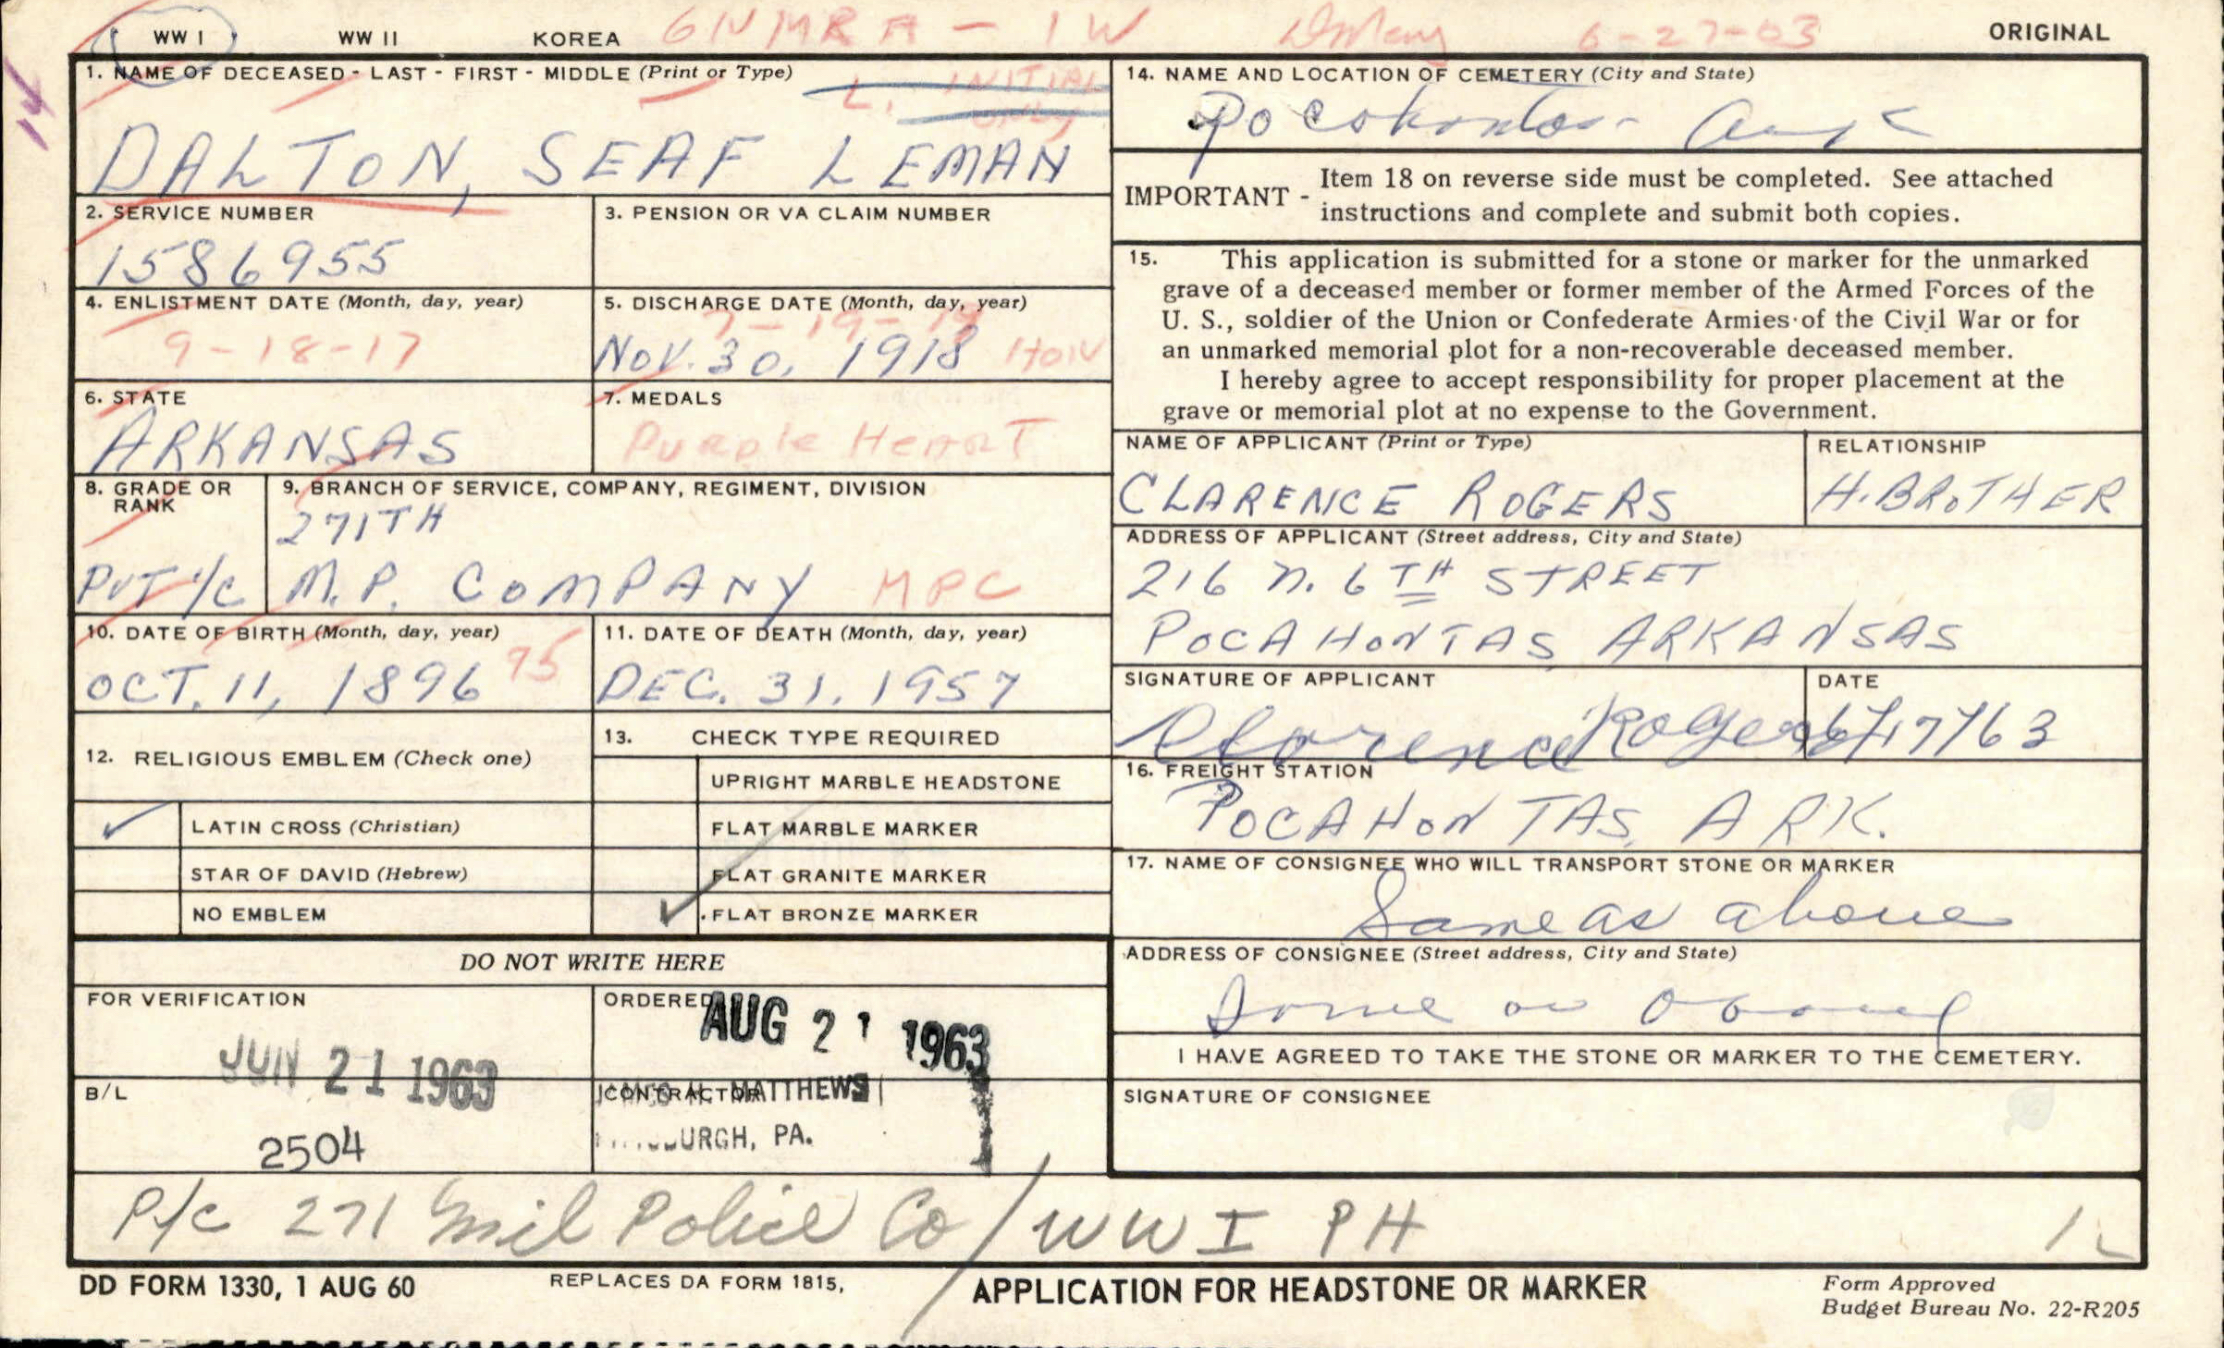 WW I WW II KOREA GNMRA - IW 6-27-63 ORIGINAL
14
1. NAME OF DECEASED - LAST - FIRST - MIDDLE (Print or Type)
L. INITIAL
ONLY
DALTON, SEAF LEMAN
2. SERVICE NUMBER
1586955
3. PENSION OR VA CLAIM NUMBER
4. ENLISTMENT DATE (Month, day, year)
9-18-17
5. DISCHARGE DATE (Month, day, year)
7-19-19
NOV. 30, 1918 HON
6. STATE
ARKANSAS
7. MEDALS
Purple Heart
8. GRADE OR
RANK
PVT 1/C
9. BRANCH OF SERVICE, COMPANY, REGIMENT, DIVISION
271TH
M.P. COMPANY MPC
10. DATE OF BIRTH (Month, day, year)
OCT. 11, 1896 95
11. DATE OF DEATH (Month, day, year)
DEC. 31, 1957
12. RELIGIOUS EMBLEM (Check one)
LATIN CROSS (Christian)
STAR OF DAVID (Hebrew)
NO EMBLEM
13. CHECK TYPE REQUIRED
UPRIGHT MARBLE HEADSTONE
FLAT MARBLE MARKER
FLAT GRANITE MARKER
FLAT BRONZE MARKER
DO NOT WRITE HERE
FOR VERIFICATION
JUN 21 1963
ORDERED
AUG 21 1963
B/L
2504
CONTRACTOR
MATTHEWS
PA.
14. NAME AND LOCATION OF CEMETERY (City and State)
Pocohontas - Ark
IMPORTANT - Item 18 on reverse side must be completed. See attached
instructions and complete and submit both copies.
15. This application is submitted for a stone or marker for the unmarked
grave of a deceased member or former member of the Armed Forces of the
U. S., soldier of the Union or Confederate Armies of the Civil War or for
an unmarked memorial plot for a non-recoverable deceased member.
I hereby agree to accept responsibility for proper placement at the
grave or memorial plot at no expense to the Government.
NAME OF APPLICANT (Print or Type)
CLARENCE ROGERS
RELATIONSHIP
H. BROTHER
ADDRESS OF APPLICANT (Street address, City and State)
216 N. 6TH STREET
POCAHONTAS ARKANSAS
SIGNATURE OF APPLICANT
Clarence Rogers
DATE
6/17/63
16. FREIGHT STATION
POCAHONTAS, ARK.
17. NAME OF CONSIGNEE WHO WILL TRANSPORT STONE OR MARKER
Same as above
ADDRESS OF CONSIGNEE (Street address, City and State)
Same as above
I HAVE AGREED TO TAKE THE STONE OR MARKER TO THE CEMETERY.
SIGNATURE OF CONSIGNEE
P/c 271 Mil Police Co / WW I PH
DD FORM 1330, 1 AUG 60 REPLACES DA FORM 1815, APPLICATION FOR HEADSTONE OR MARKER
Form Approved
Budget Bureau No. 22-R205